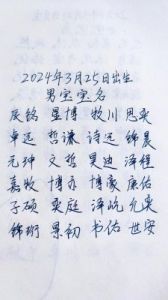 2024年3月25日出生
男宝宝名
辰铭 星博 牧川 恩奕
卓远 哲谦 诗远 锦晨
元珅 文哲 昊迪 泽程
嘉牧 博永 博豪 康佑
子硕 奕庭 泽屹 允奕
锦珩 景初 书佑 世安